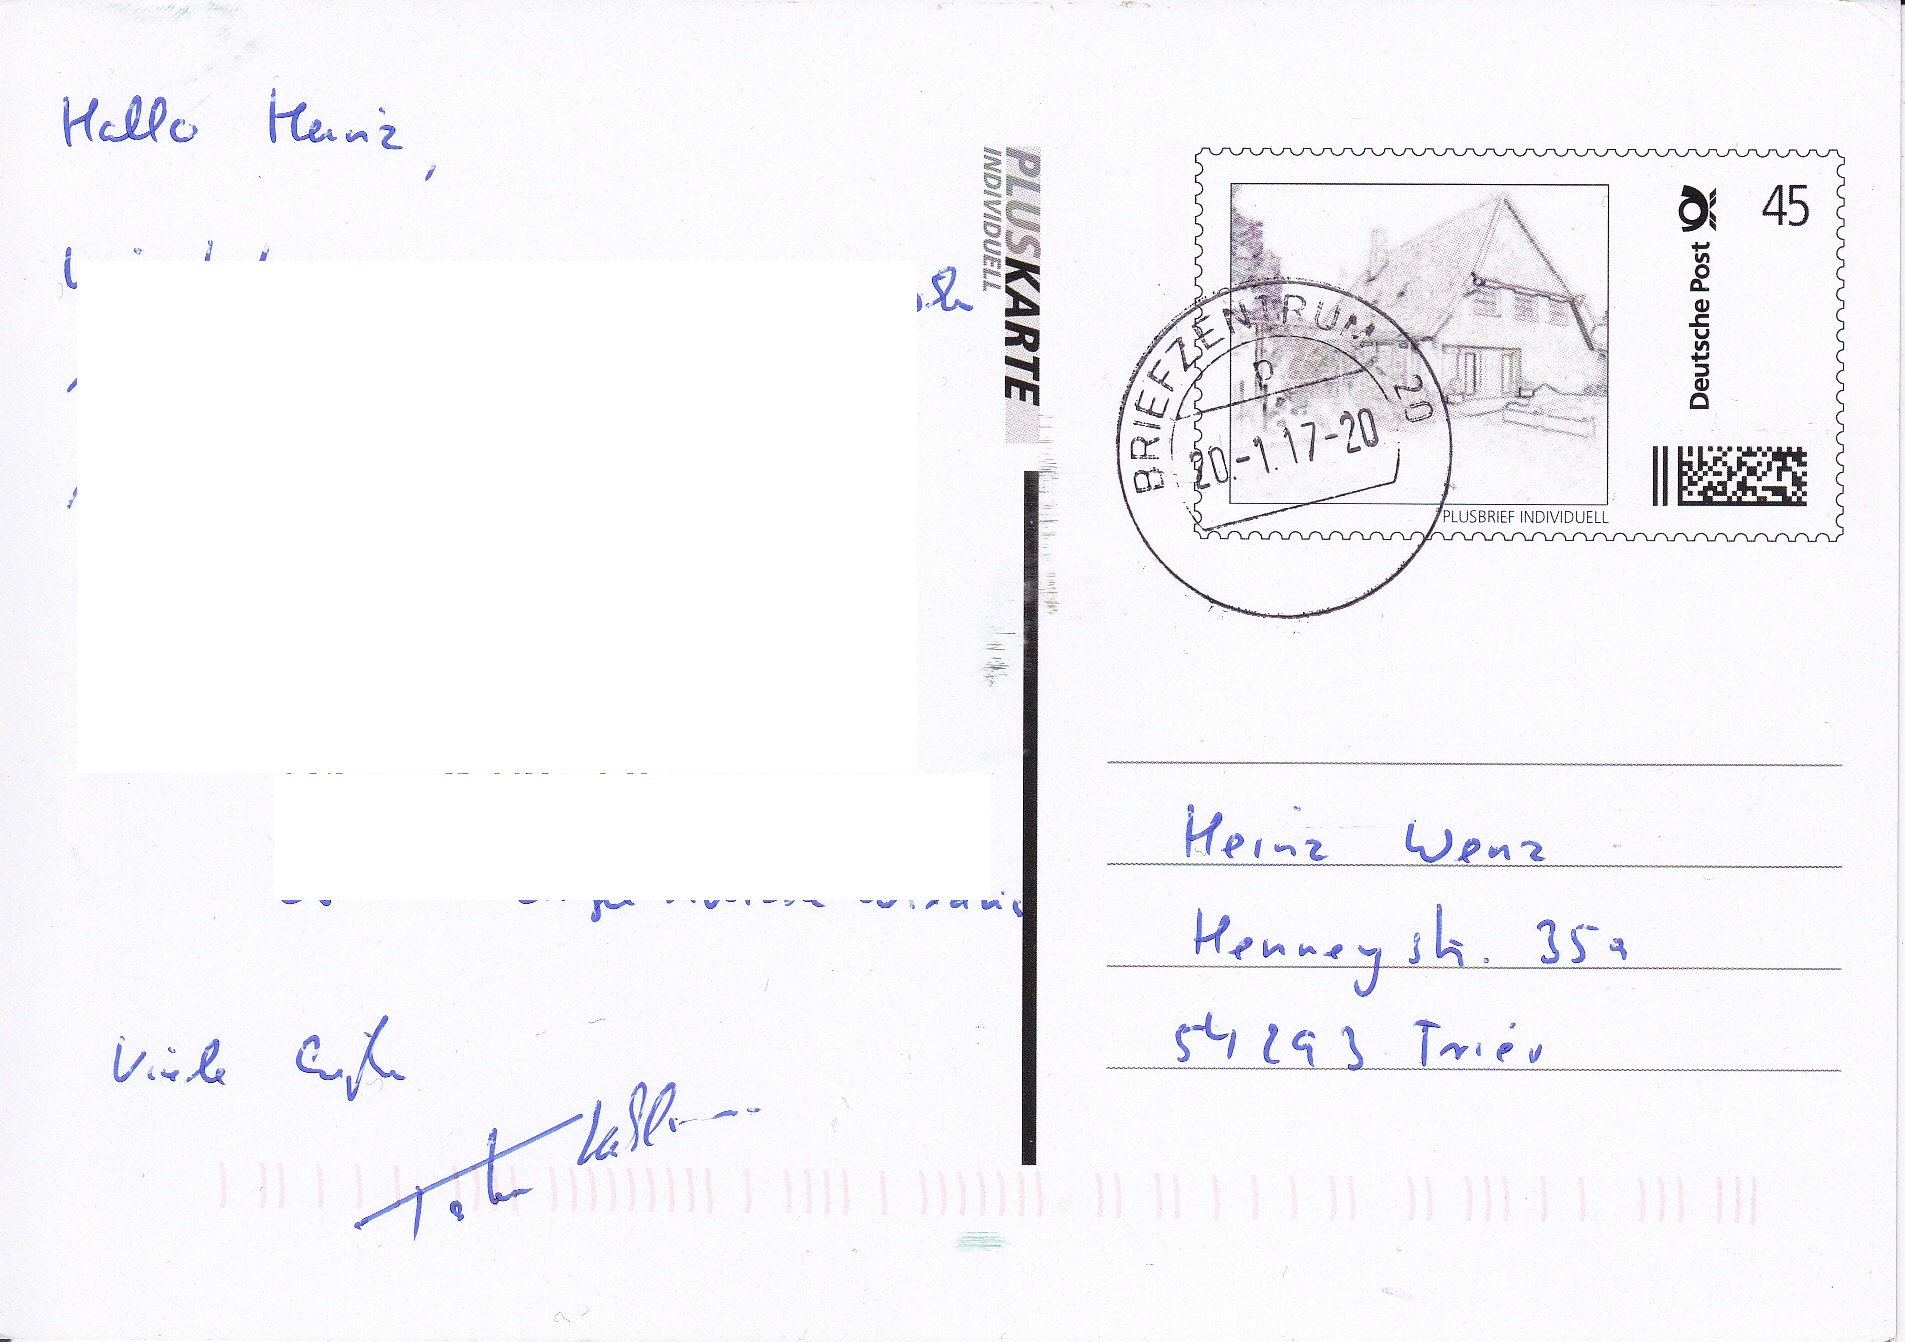 Hallo Heinz,
Viele Grüße
PLUSKARTE
INDIVIDUELL
Deutsche Post
45
PLUSBRIEF INDIVIDUELL
BRIEFZENTRUM 20
20.-1.17-20
Heinz Wenz
Henneystr. 35a
54293 Trier